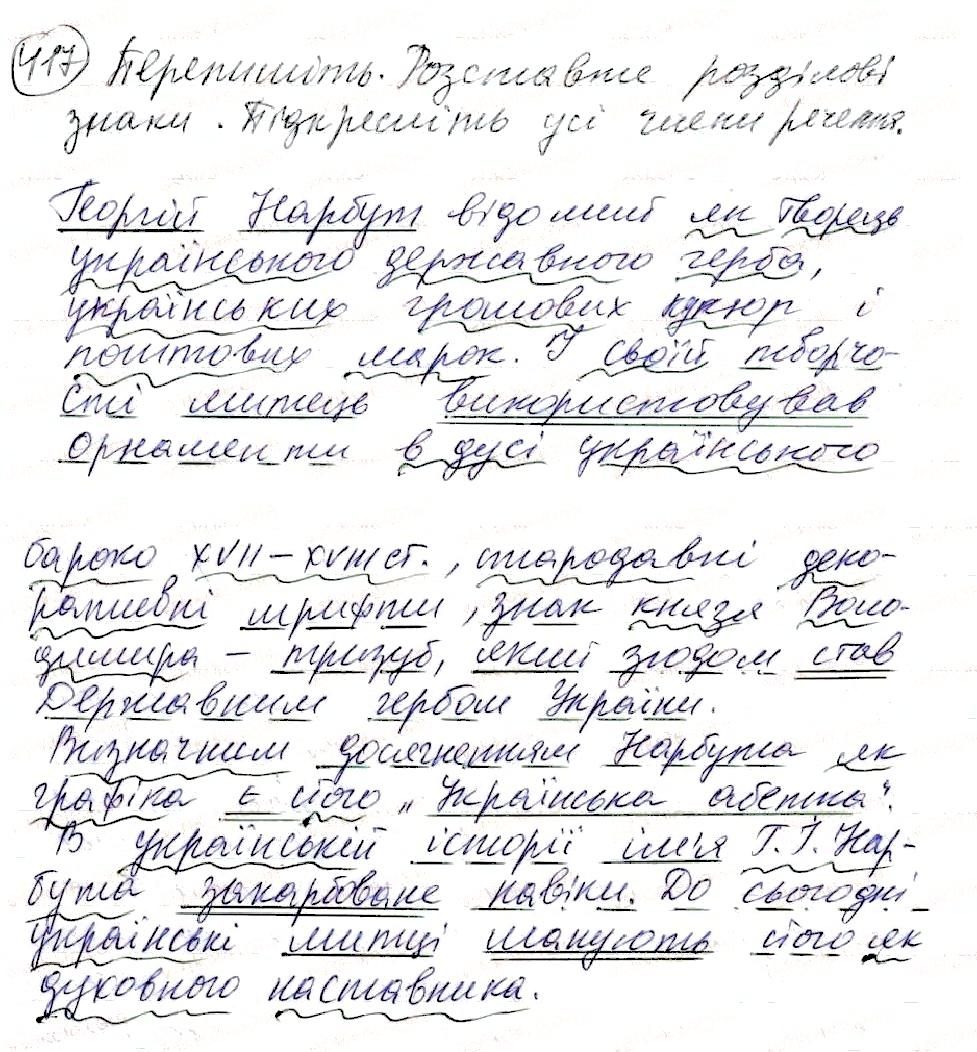 417 Перепишіть. Розставте розділові
знаки. Підкресліть усі члени речення.
Георгій Нарбут відомий як творець
українського державного герба,
українських грошових купюр і
поштових марок. У своїй творчо-
сті митець використовував
орнаменти в дусі українського
бароко XVII – XVIII ст., стародавні деко-
ративні шрифти, знак князя Воло-
димира – тризуб, який згодом став
Державним гербом України.
Визначним досягненням Нарбута як
графіка є його „Українська абетка".
В українській історії ім'я Г. І. Нар-
бута закарбоване навіки. До сьогодні
українські митці шанують його як
духовного наставника.